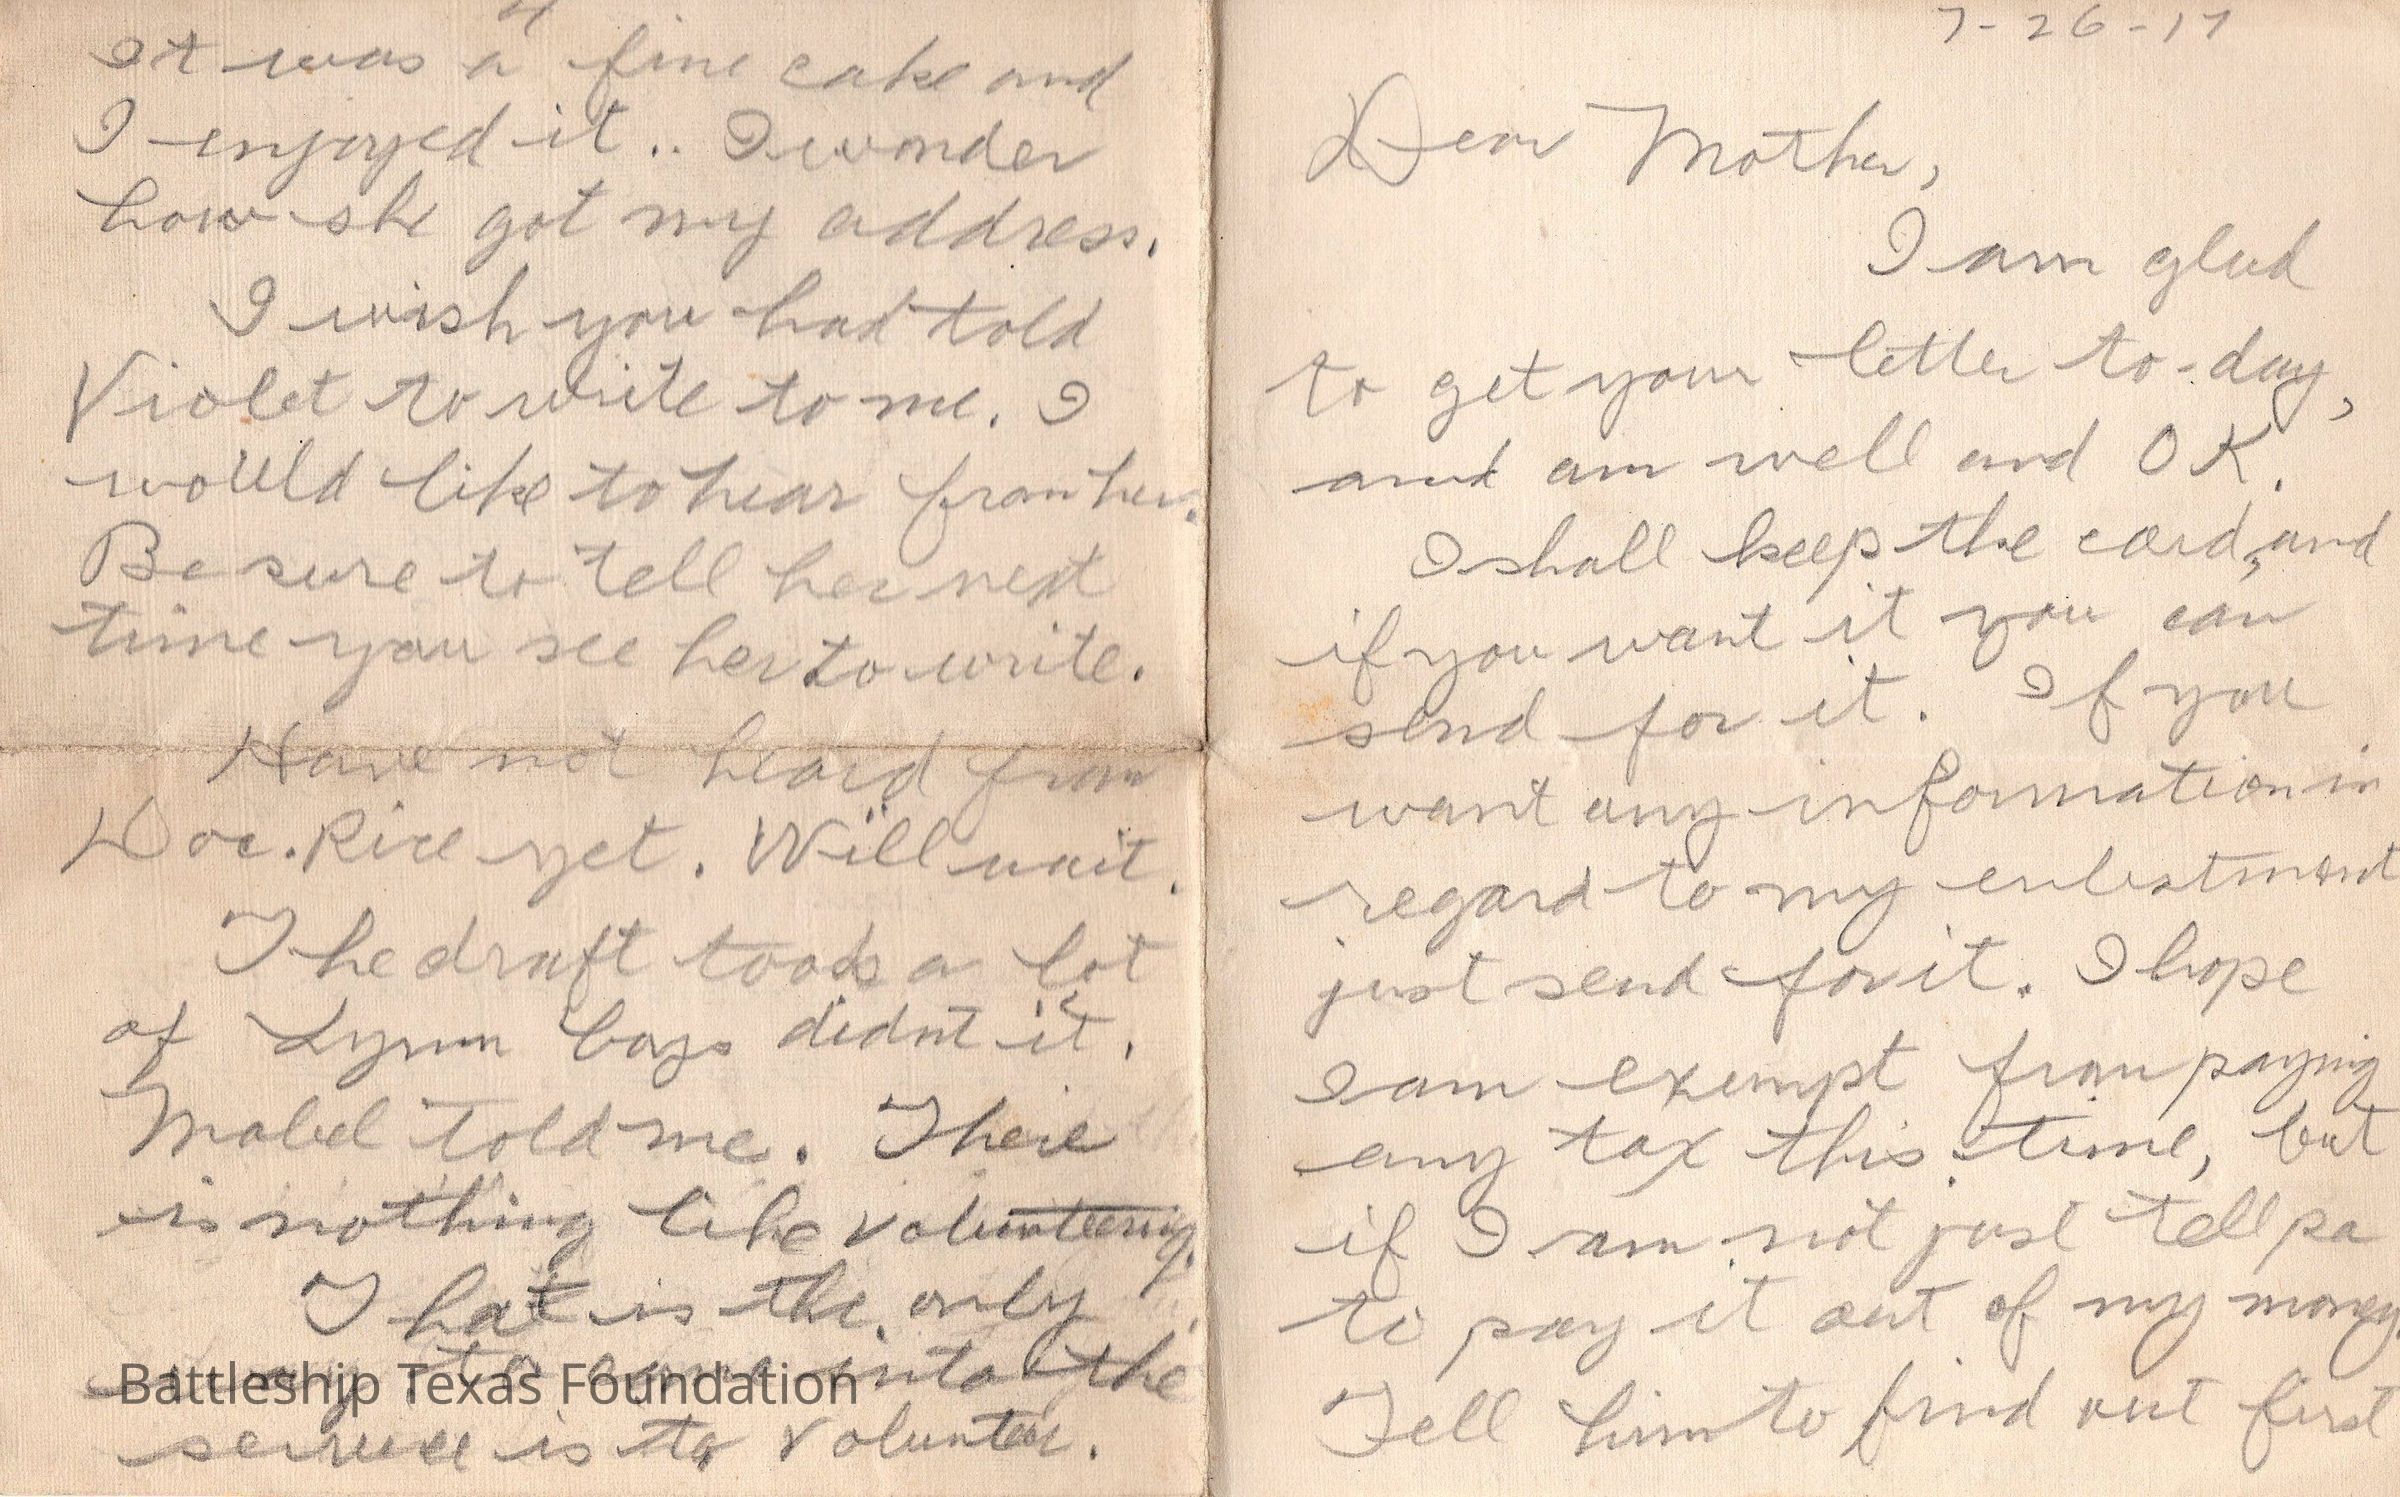 4
It was a fine cake and
I enjoyed it.. I wonder
how she got my address.
I wish you had told
Violet to write to me. I
would like to hear from her.
Be sure to tell her next
time you see her to write.
Have not heard from
Doc. Rice yet. Will wait.
The draft took a lot
of Lynn boys didnt it.
Mabel told me. There
is nothing like volunteering.
That is the only
way to come into the
service is to volunteer.
Battleship Texas Foundation
7-26-17
Dear Mother,
I am glad
to get your letter to-day,
and am well and OK.
I shall keep the card, and
if you want it you can
send for it. If you
want any information in
regard to my enlistment
just send for it. I hope
I am exempt from paying
any tax this time, but
if I am not just tell pa
to pay it out of my money.
Tell him to find out first